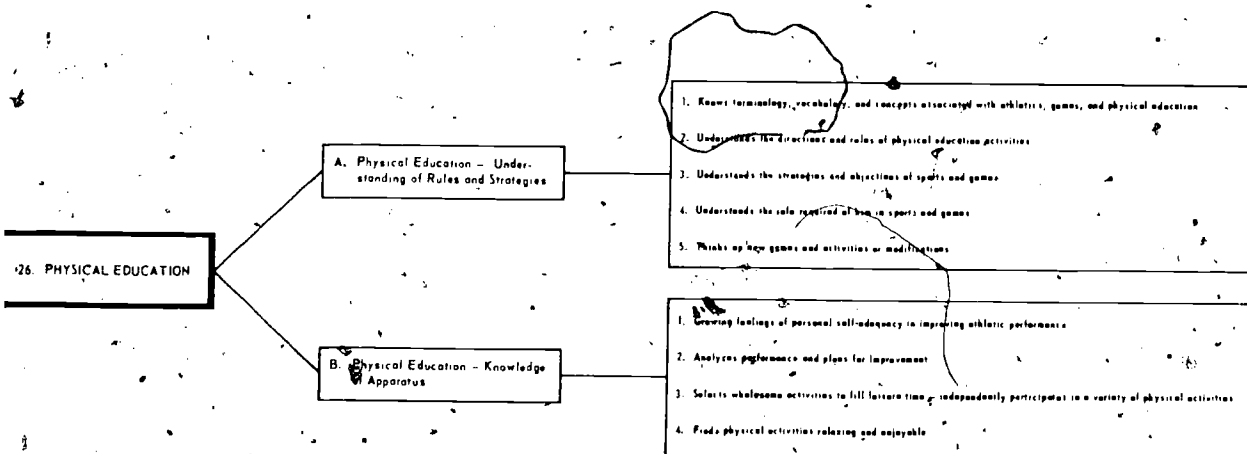 26. PHYSICAL EDUCATION
A. Physical Education – Under-
standing of Rules and Strategies
1. Knows terminology, vocabulary, and concepts associated with athletics, games, and physical education
2. Understands the directions and rules of physical education activities
3. Understands the strategies and objectives of sports and games
4. Understands the role required of him in sports and games
5. Thinks up new games and activities or modifications
B. Physical Education – Knowledge
Apparatus
1. Growing feelings of personal self-adequacy in improving athletic performance
2. Analyzes performance and plans for improvement
3. Selects wholesome activities to fill leisure time – independently participates in a variety of physical activities
4. Finds physical activities relaxing and enjoyable